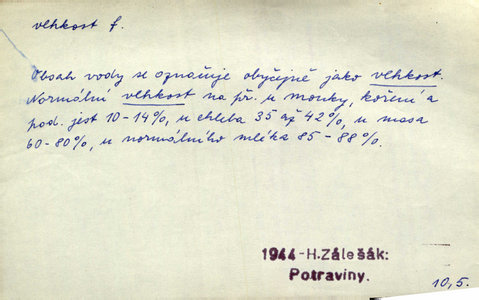 vlhkost f.
Obsah vody se označuje obyčejně jako vlhkost.
Normální vlhkost na př. u mouky, koření a
pod. jest 10-14%, u chleba 35 až 42%, u masa
60-80%, u normálního mléka 85-88%.
1944-H.Zálešák:
Potraviny.
10,5.